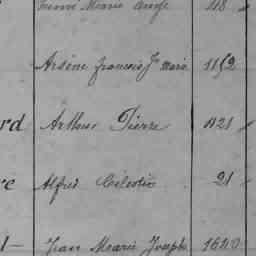 Marie Ange 118
Arsène François Je Marie 1152
rd Arthur Pierre 1121
re Alfred Célestin 21
l- Jean Marie Joseph 1640